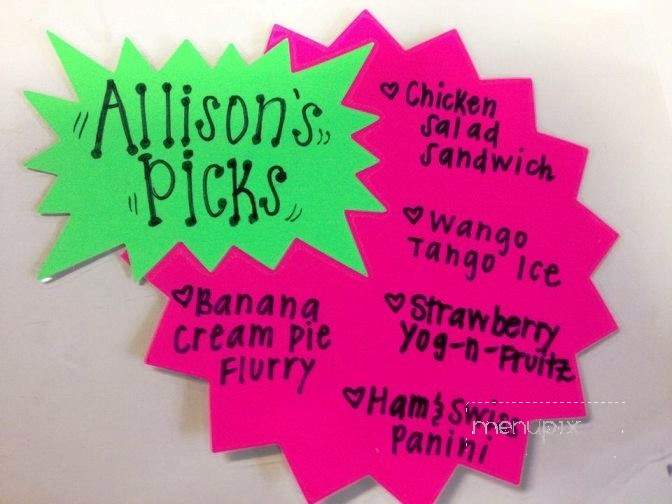 Allison's
Picks
♡Chicken
Salad
Sandwich
♡Wango
Tango Ice
♡Banana
Cream Pie
Flurry
♡Strawberry
Yog-n-Fruitz
♡Ham & Swiss
Panini
menupix